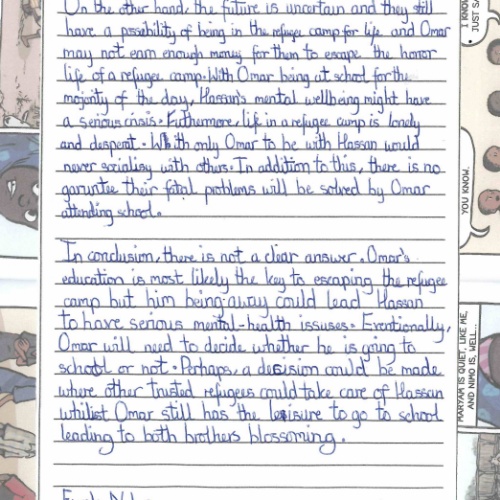 On the other hand, the future is uncertain and they still
have a possibility of being in the refugee camp for life and Omar
may not earn enough money for them to escape the horror
life of a refugee camp. With Omar being at school for the
majority of the day, Hassan's mental wellbeing might have
a serious crisis. Futhermore, life in a refugee camp is lonely
and desperat. With only Omar to be with Hassan would
never socialisy with others. In addition to this, there is no
garuntee their fatal problems will be solved by Omar
attending school.
In conclusion, there is not a clear answer. Omar's
education is most likely the key to escaping the refugee
camp but him being away could lead Hassan
to have serious mental-health issuses. Eventionally,
Omar will need to decide whether he is going to
school or not. Perhaps, a decision could be made
where other trusted refugees could take care of Hassan
whilist Omar still has the leisure to go to school
leading to both brothers blossoming.
I KNOW
JUST SA
YOU KNOW.
MARYAM IS QUIET, LIKE ME,
AND NIMO IS, WELL...